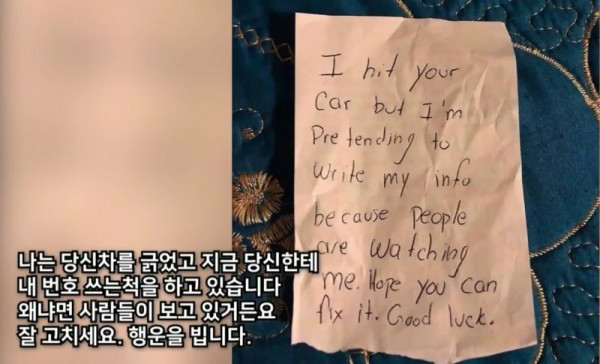 I hit your
Car but I'm
Pretending to
Write my info
because People
are watching
me. Hope you can
fix it. Good luck.
나는 당신차를 긁었고 지금 당신한테
내 번호 쓰는척을 하고 있습니다
왜냐면 사람들이 보고 있거든요
잘 고치세요. 행운을 빕니다.